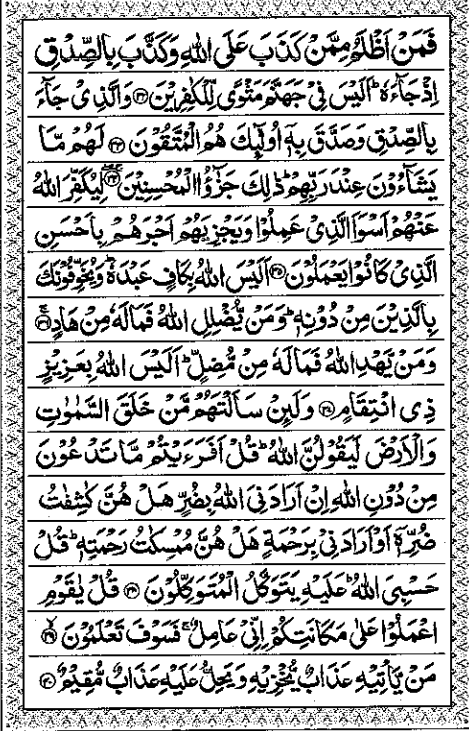 فَمَنْ اَظْلَمُ مِمَّنْ كَذَبَ عَلَى اللّٰهِ وَكَذَّبَ بِالصِّدْقِ
اِذْ جَآءَهٗ ؕ اَلَيْسَ فِىْ جَهَنَّمَ مَثْوًى لِّلْكٰفِرِيْنَ ﴿۳۲﴾ وَالَّذِىْ جَآءَ
بِالصِّدْقِ وَصَدَّقَ بِهٖۤ اُولٰٓئِكَ هُمُ الْمُتَّقُوْنَ ﴿۳۳﴾ لَهُمْ مَّا
يَشَآءُوْنَ عِنْدَ رَبِّهِمْ ؕ ذٰلِكَ جَزٰٓؤُا الْمُحْسِنِيْنَ ﴿۳۴﴾ لِيُكَفِّرَ اللّٰهُ
عَنْهُمْ اَسْوَاَ الَّذِىْ عَمِلُوْا وَيَجْزِيَهُمْ اَجْرَهُمْ بِاَحْسَنِ
الَّذِىْ كَانُوْا يَعْمَلُوْنَ ﴿۳۵﴾ اَلَيْسَ اللّٰهُ بِكَافٍ عَبْدَهٗ ؕ وَيُخَوِّفُوْنَكَ
بِالَّذِيْنَ مِنْ دُوْنِهٖ ؕ وَمَنْ يُّضْلِلِ اللّٰهُ فَمَا لَهٗ مِنْ هَادٍ ﴿۳۶﴾
وَمَنْ يَّهْدِ اللّٰهُ فَمَا لَهٗ مِنْ مُّضِلٍّ ؕ اَلَيْسَ اللّٰهُ بِعَزِيْزٍ
ذِى انْتِقَامٍ ﴿۳۷﴾ وَلَئِنْ سَاَلْتَهُمْ مَّنْ خَلَقَ السَّمٰوٰتِ
وَالْاَرْضَ لَيَقُوْلُنَّ اللّٰهُ ؕ قُلْ اَفَرَءَيْتُمْ مَّا تَدْعُوْنَ
مِنْ دُوْنِ اللّٰهِ اِنْ اَرَادَنِىَ اللّٰهُ بِضُرٍّ هَلْ هُنَّ كٰشِفٰتُ
ضُرِّهٖۤ اَوْ اَرَادَنِىْ بِرَحْمَةٍ هَلْ هُنَّ مُمْسِكٰتُ رَحْمَتِهٖ ؕ قُلْ
حَسْبِىَ اللّٰهُ ؕ عَلَيْهِ يَتَوَكَّلُ الْمُتَوَكِّلُوْنَ ﴿۳۸﴾ قُلْ يٰقَوْمِ
اعْمَلُوْا عَلٰى مَكَانَتِكُمْ اِنِّىْ عَامِلٌ ۚ فَسَوْفَ تَعْلَمُوْنَ ﴿۳۹﴾
مَنْ يَّاْتِيْهِ عَذَابٌ يُّخْزِيْهِ وَيَحِلُّ عَلَيْهِ عَذَابٌ مُّقِيْمٌ ﴿۴۰﴾